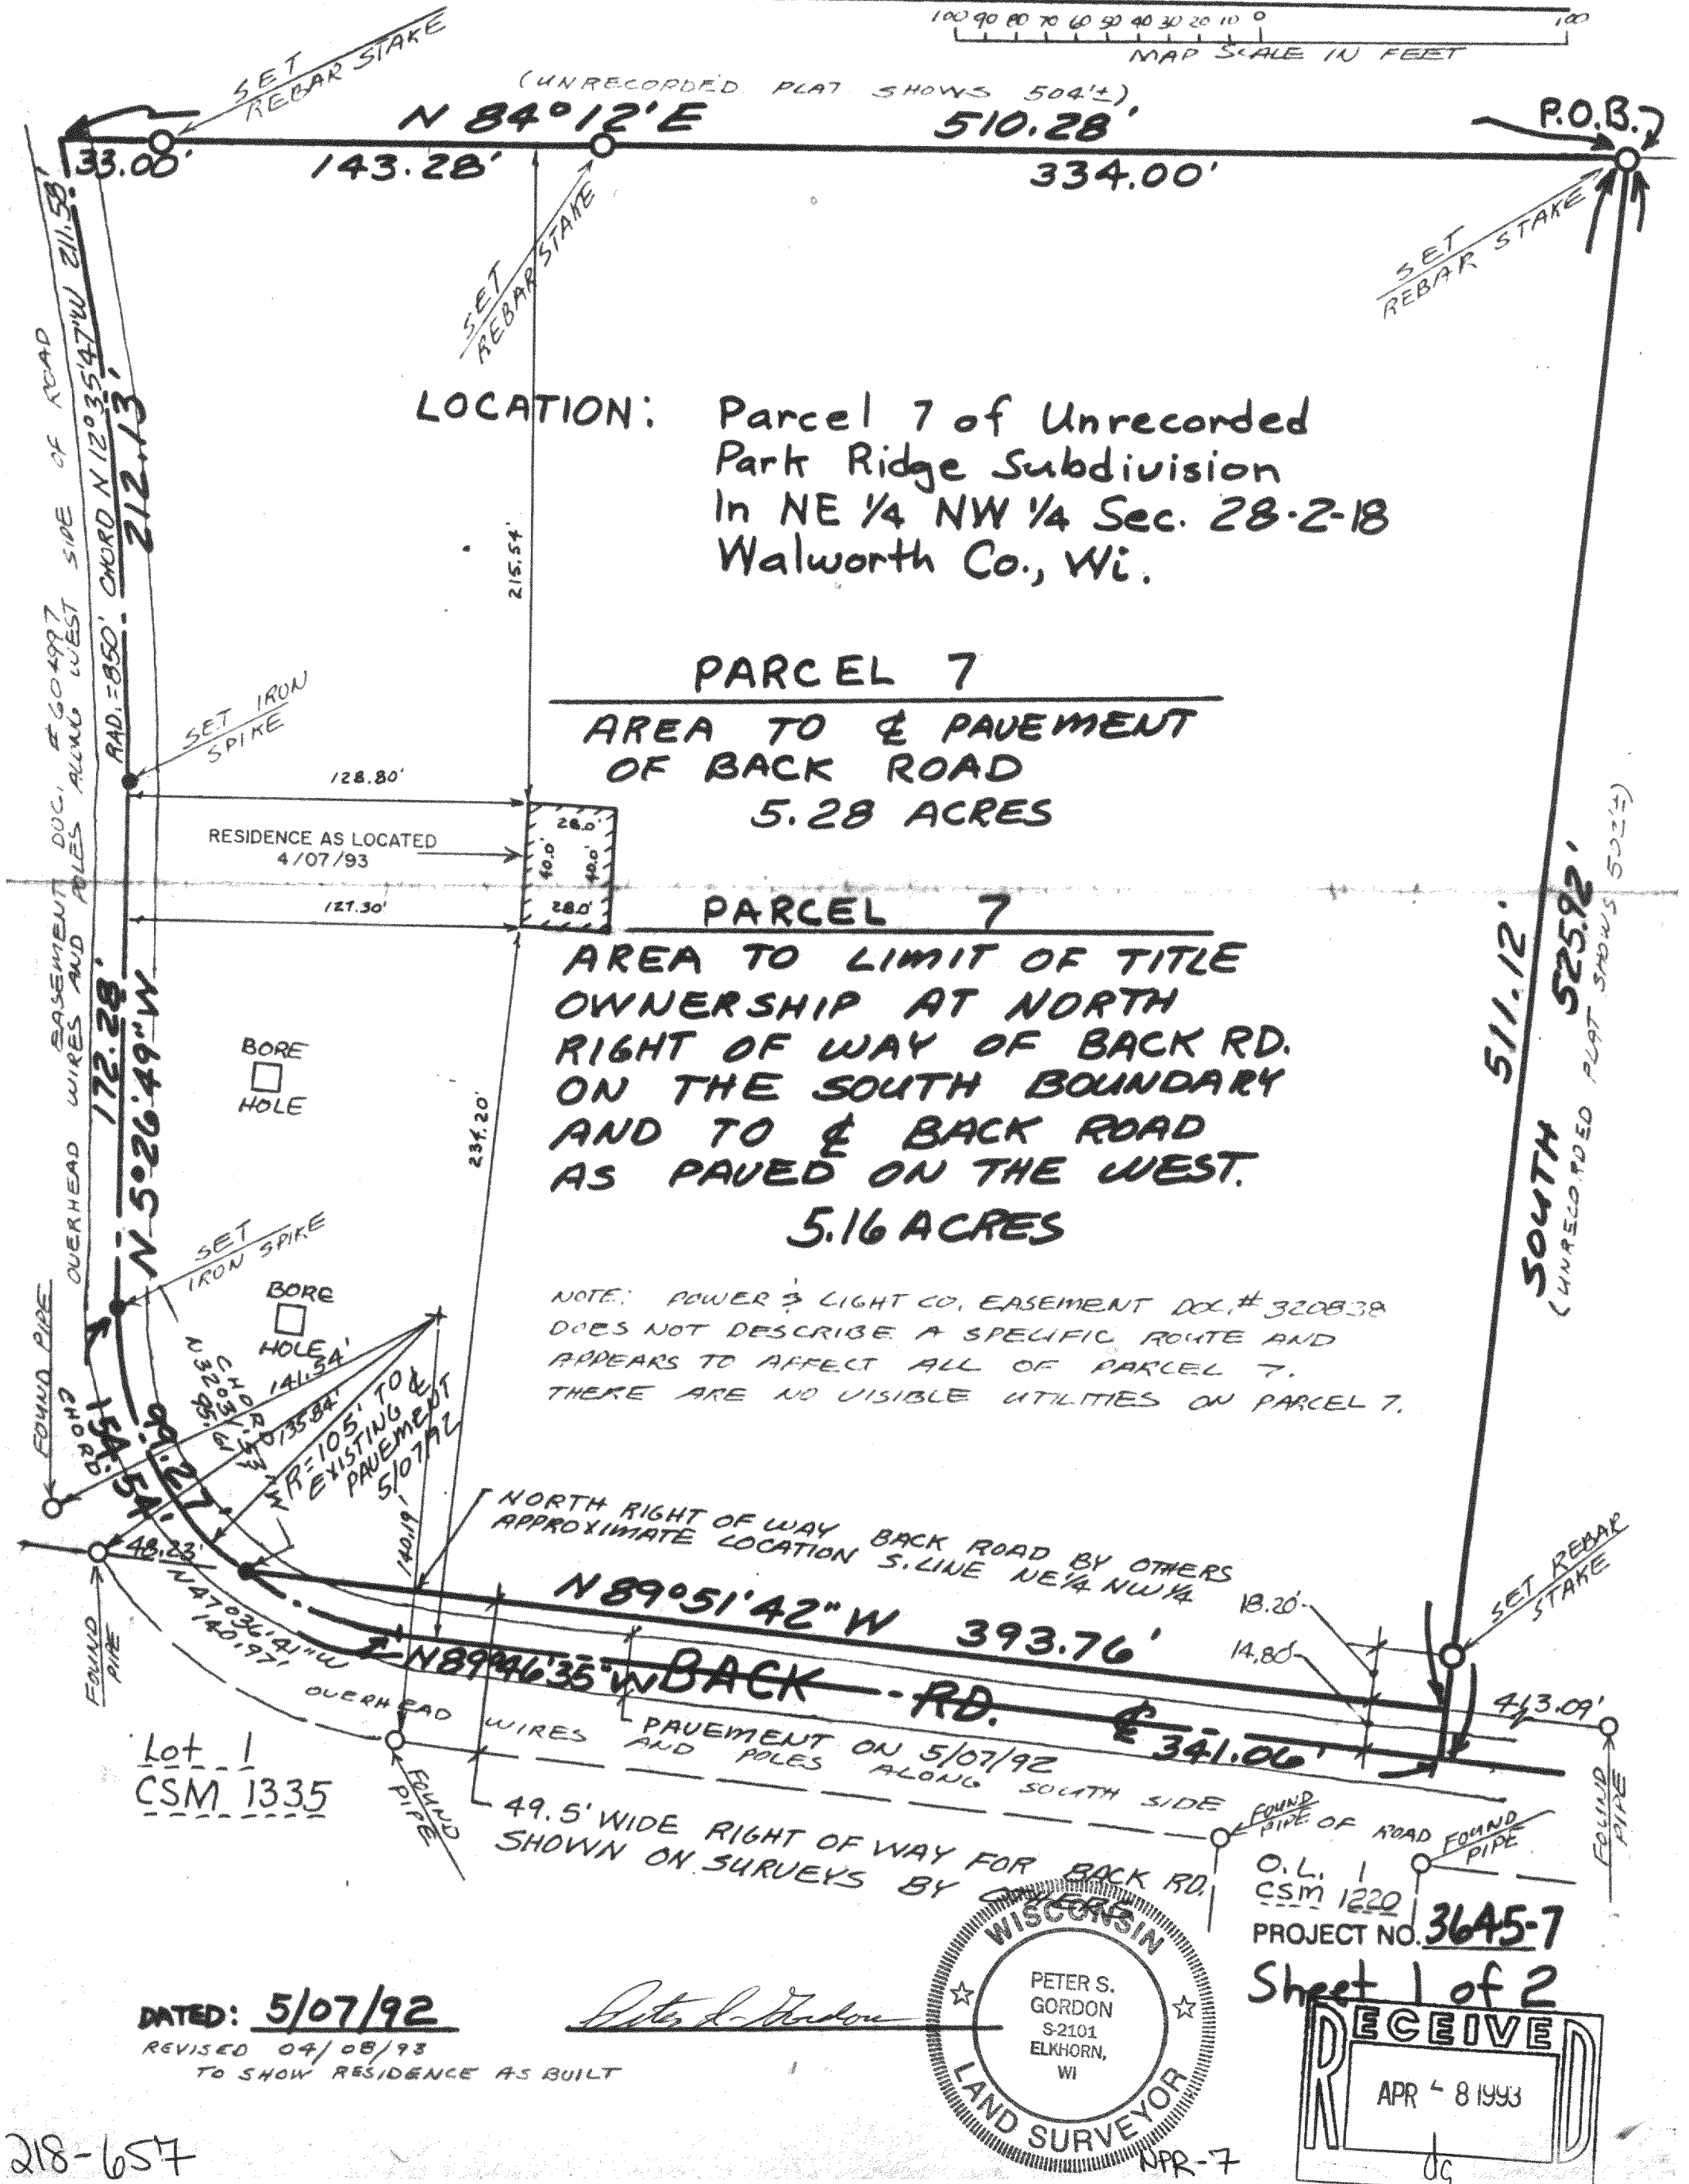 100 90 80 70 60 50 40 30 20 10 0 100
MAP SCALE IN FEET
SET
REBAR STAKE
(UNRECORDED PLAT SHOWS 504'±)
N 84°12'E 510.28'
P.O.B.
33.00' 143.28' 334.00'
SET
REBAR STAKE
SET
REBAR STAKE
RAD.=850' CHORD N 12°35'47"W 211.58'
212.13'
EASEMENT DOC. # 604997
OVERHEAD WIRES AND POLES ALONG WEST SIDE OF ROAD
LOCATION: Parcel 7 of Unrecorded
Park Ridge Subdivision
In NE 1/4 NW 1/4 Sec. 28-2-18
Walworth Co., Wi.
215.54'
PARCEL 7
AREA TO ℄ PAVEMENT
OF BACK ROAD
5.28 ACRES
SET IRON
SPIKE
128.80'
RESIDENCE AS LOCATED
4/07/93
28.0'
40.0' 40.0'
28.0'
127.30'
PARCEL 7
AREA TO LIMIT OF TITLE
OWNERSHIP AT NORTH
RIGHT OF WAY OF BACK RD.
ON THE SOUTH BOUNDARY
AND TO ℄ BACK ROAD
AS PAVED ON THE WEST.
5.16 ACRES
511.12'
SOUTH 525.92'
(UNRECORDED PLAT SHOWS 502'±)
172.28'
N 5°26'49"W
BORE
HOLE
234.20'
SET
IRON SPIKE
BORE
HOLE
NOTE: POWER & LIGHT CO. EASEMENT DOC.# 320838
DOES NOT DESCRIBE A SPECIFIC ROUTE AND
APPEARS TO AFFECT ALL OF PARCEL 7.
THERE ARE NO VISIBLE UTILITIES ON PARCEL 7.
FOUND PIPE
141.54'
135.84'
CHORD
N32°31'53"W
95.61'
R=105' TO ℄
EXISTING
PAVEMENT
5/07/92
99.27'
154.54'
CHORD
140.19'
48.23'
N47°36'41"W
140.97'
FOUND
PIPE
NORTH RIGHT OF WAY BACK ROAD BY OTHERS
APPROXIMATE LOCATION S. LINE NE1/4 NW1/4
N 89°51'42" W 393.76'
18.20'
14.80'
SET REBAR
STAKE
N89°46'35"W BACK RD. ℄ 341.06'
413.09'
OVERHEAD WIRES AND POLES ALONG SOUTH SIDE OF ROAD
PAVEMENT ON 5/07/92
FOUND
PIPE
FOUND
PIPE
FOUND
PIPE
FOUND
PIPE
Lot 1
CSM 1335
49.5' WIDE RIGHT OF WAY FOR BACK RD.
SHOWN ON SURVEYS BY OTHERS
O.L. 1
CSM 1220
PROJECT NO. 3645-7
Sheet 1 of 2
DATED: 5/07/92
REVISED 04/08/93
TO SHOW RESIDENCE AS BUILT
Peter S. Gordon
WISCONSIN
PETER S.
GORDON
S-2101
ELKHORN,
WI
LAND SURVEYOR
RECEIVED
APR - 8 1993
dg
218-657
NPR-7